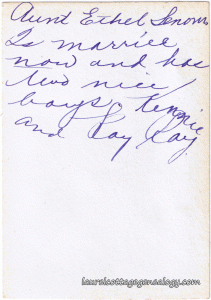 Aunt Ethel Senom
Is marriee
now and has
two nice
boys. Kennie
and Ray Ray
laurelcottagegenealogy.com